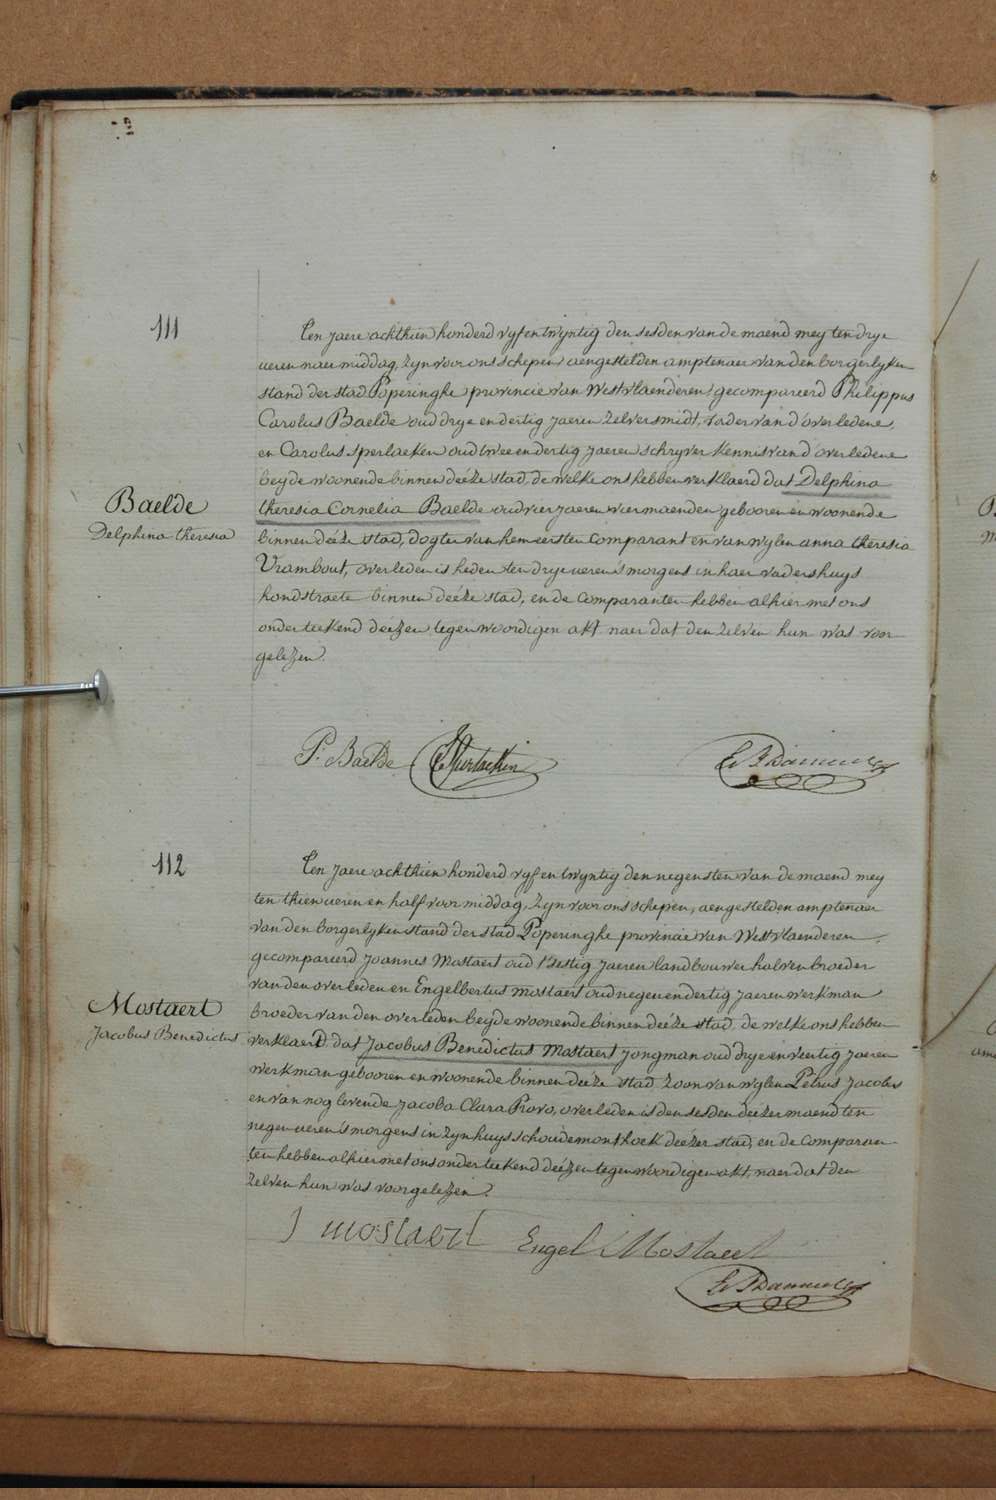 111
Baelde
Delphina theresia
Ten jaere achthien honderd vyf en twyntig den sesden van de maend mey ten drye
ueren naer middag, zyn voor ons schepen, aengestelden amptenaer van den borgerlyken
stand der stad Poperinghe provincie van Westvlaenderen, gecompareerd Philippus
Carolus Baelde oud drye en dertig jaeren zelversmidt, vader van d'overledene,
en Carolus Sperlaeken oud twee en dertig jaeren schryver kennis van d'overledene
beyde woonende binnen deéze stad, de welke ons hebben verklaerd dat Delphina
theresia Cornelia Baelde oud vier jaeren vier maenden gebooren en woonende
binnen deéze stad, dogter van hem eersten comparant en van wylen anna theresia
Vrambout, overleden is heden ten drye ueren 's morgens in haer vaders huys
hondstraete binnen deéze stad, en de comparanten hebben alhier met ons
onderteekend deézen tegenwoordigen akt naer dat den zelven hun was voor
gelezen.
P. Baelde
112
Mostaert
Jacobus Benedictus
Ten jaere achthien honderd vyf en twyntig den negensten van de maend mey
ten thien ueren en half voor middag, zyn voor ons schepen, aengestelden amptenaer
van den borgerlyken stand der stad Poperinghe provincie van Westvlaenderen
gecompareerd Joannes Mostaert oud sestig jaeren landbouwer halven broeder
van den overleden en Engelbertus Mostaert oud negen en dertig jaeren werkman
broeder van den overleden beyde woonende binnen deéze stad, de welke ons hebben
verklaerd dat Jacobus Benedictus Mostaert jongman oud drye en veertig jaeren
werkman gebooren en woonende binnen deéze stad, zoon van wylen Petrus Jacobus
en van nog levende Jacoba Clara Provo, overleden is den sesden deézer maend ten
negen ueren 's morgens in zyn huys schoudemonthoek deézer stad, en de comparan-
ten hebben alhier met ons onderteekend deézen tegenwoordigen akt, naer dat den
zelven hun was voorgelezen.
J mostaert Engel Mostaert